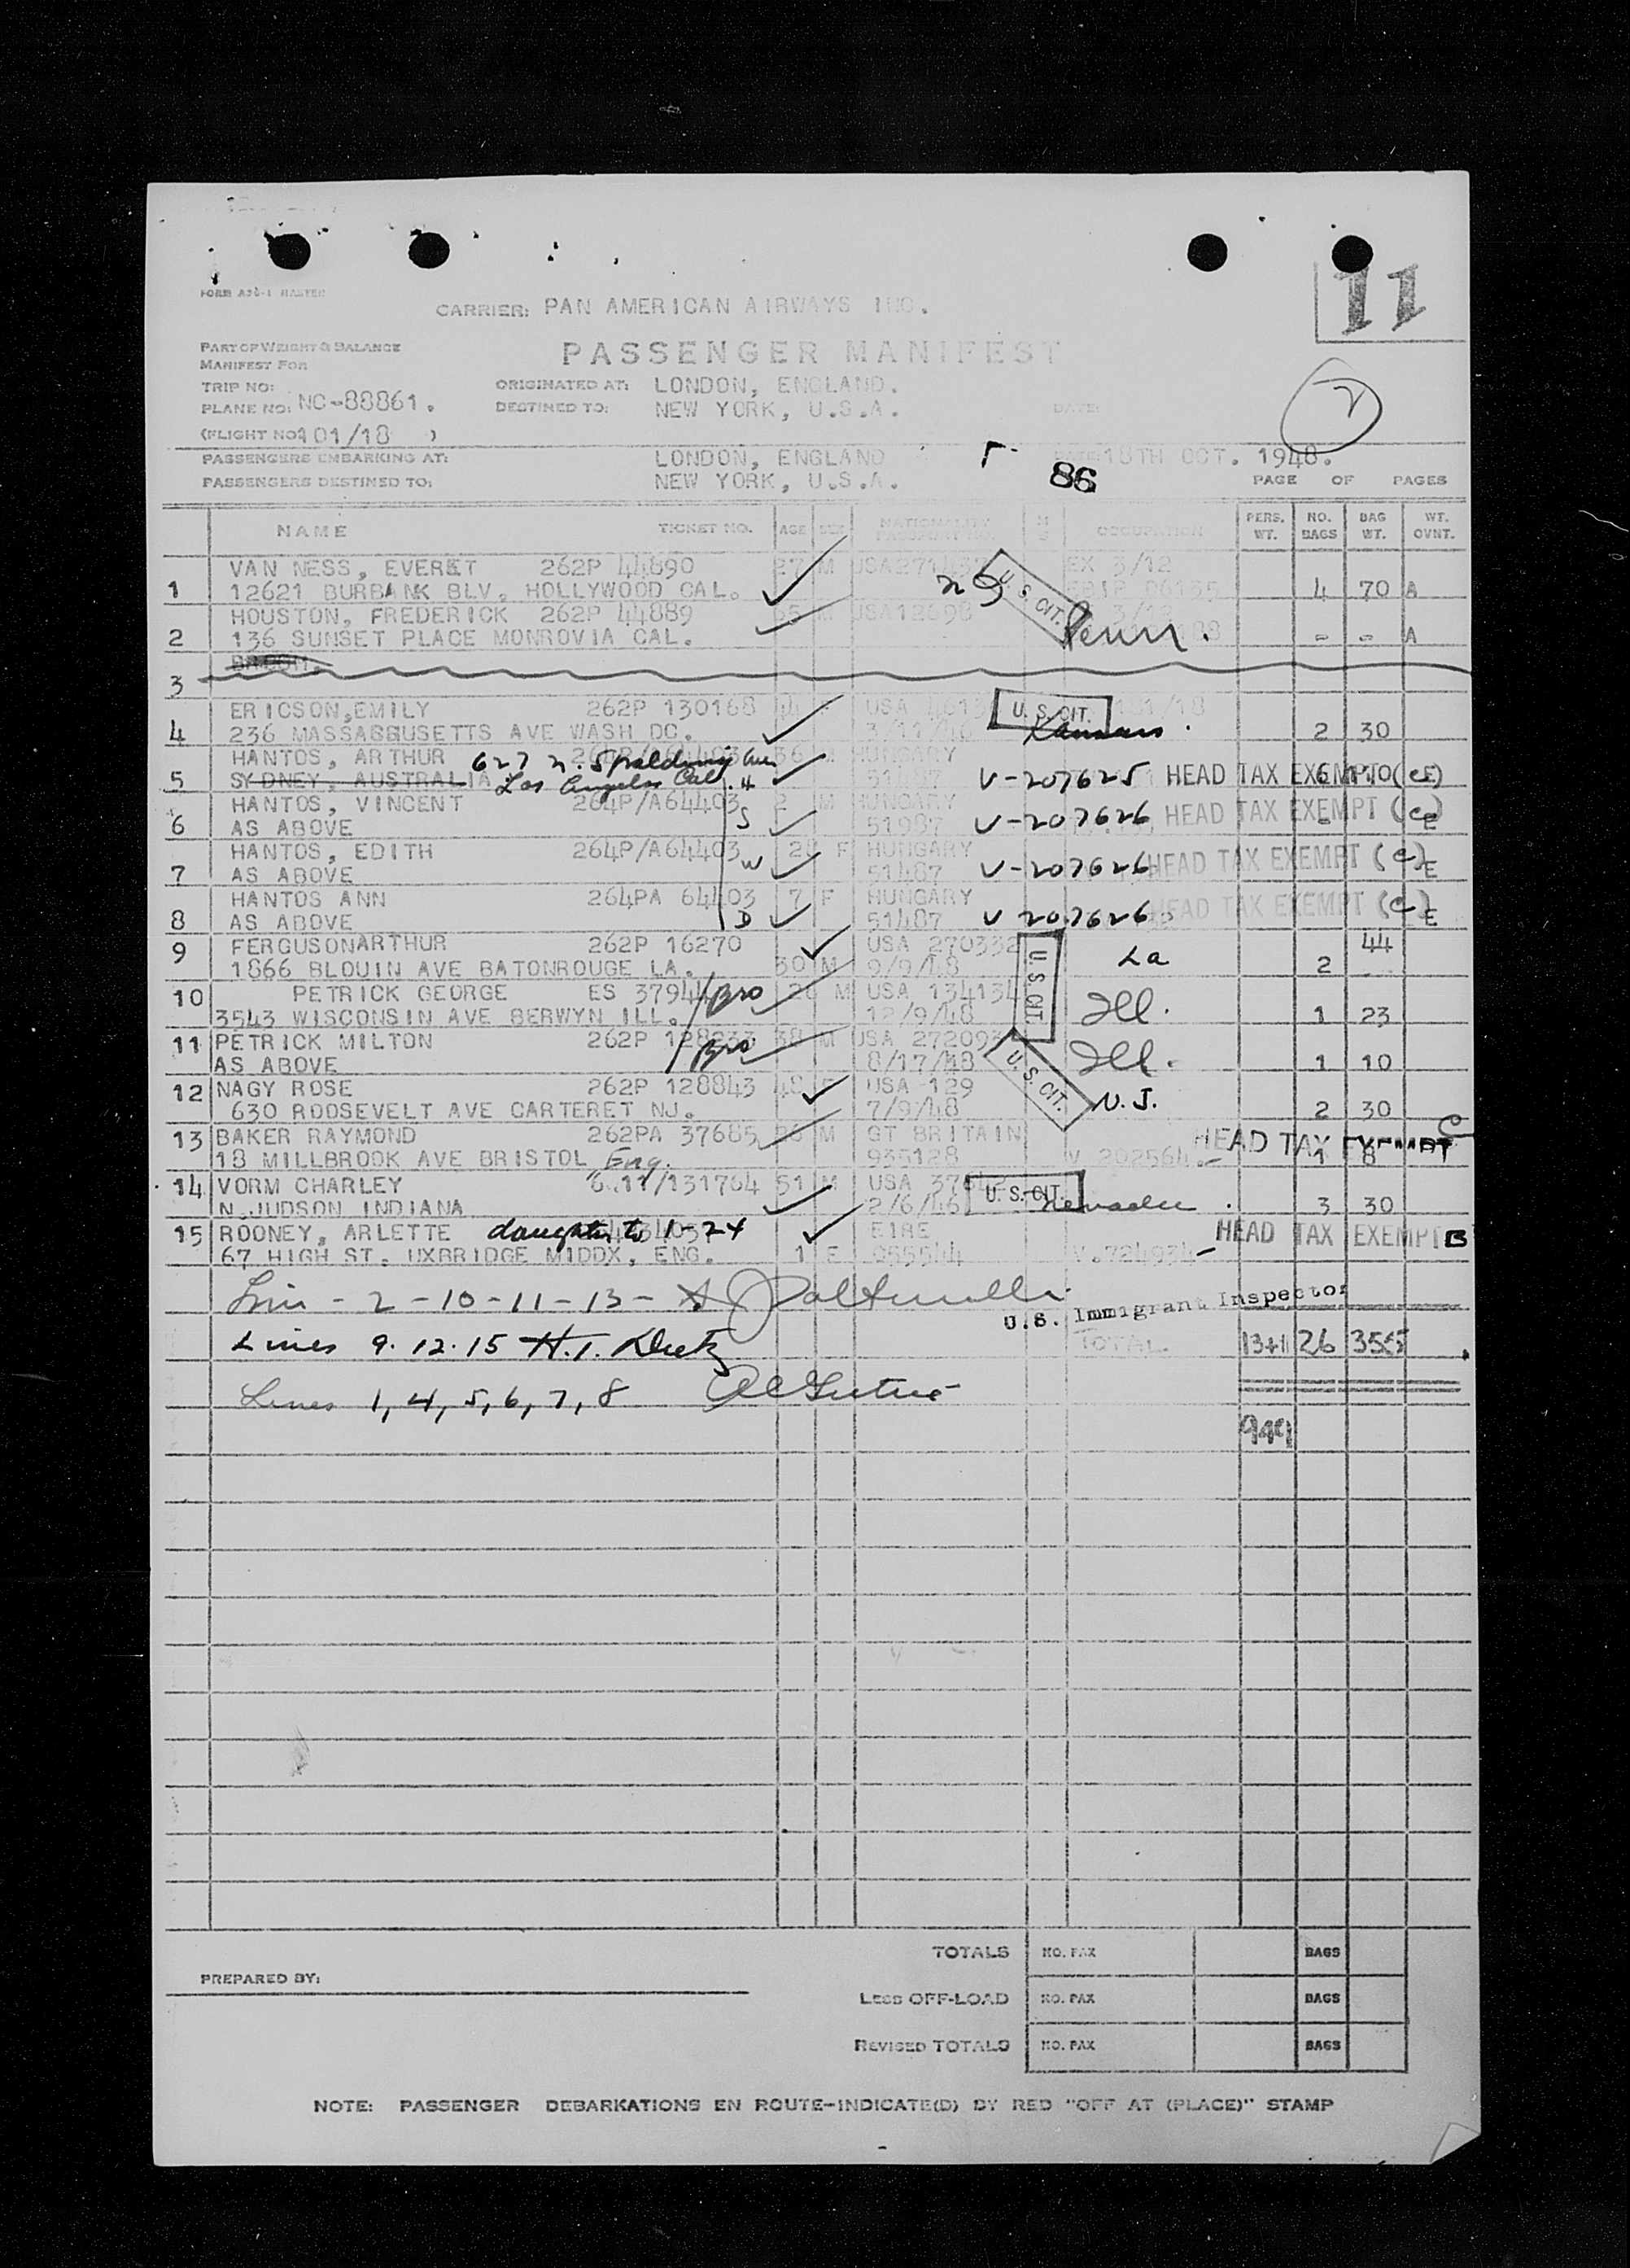 FORM
11
CARRIER: PAN AMERICAN AIRWAYS INC.
PART OF WEIGHT & BALANCE
MANIFEST FOR
PASSENGER MANIFEST
2
TRIP NO:
ORIGINATED AT: LONDON, ENGLAND.
PLANE NO: NC-88861.
DESTINED TO: NEW YORK, U.S.A.
DATE:
(FLIGHT NO 101/18 )
PASSENGERS EMBARKING AT: LONDON, ENGLAND
18TH OCT. 1948.
PASSENGERS DESTINED TO: NEW YORK, U.S.A.
86
PAGE OF PAGES
NAME TICKET NO. AGE SEX NATIONALITY PASSPORT NO. OCCUPATION PERS. WT. NO. BAGS BAG WT. WT. OVNT.
VAN NESS, EVERET 262P 44890 27 M EX 3/12
1 12621 BURBANK BLV. HOLLYWOOD CAL. U.S. CIT. 4 70 A
HOUSTON, FREDERICK 262P 44889 M USA12698
2 136 SUNSET PLACE MONROVIA CAL. Penn. - - A
3
ERICSON,EMILY 262P 130168 44 F USA
4 236 MASSASSUSETTS AVE WASH DC. U.S. CIT. Kansas. 2 30
HANTOS, ARTHUR 627 N. Spalding Ave 36 M HUNGARY
5 SYDNEY, AUSTRALIA Los Angeles Cal. H V-207625 HEAD TAX EXEMPT (CE)
HANTOS, VINCENT 264P/A64403 2 M HUNGARY
6 AS ABOVE S 51987 V-207626 HEAD TAX EXEMPT (C)E
HANTOS, EDITH 264P/A64403 28 F HUNGARY
7 AS ABOVE W 51487 V-207626 HEAD TAX EXEMPT (C)E
HANTOS ANN 264PA 64403 7 F HUNGARY
8 AS ABOVE D 51487 V 207626 HEAD TAX EXEMPT (C)E
9 FERGUSONARTHUR 262P 16270 USA 270332 44
1866 BLOUIN AVE BATONROUGE LA. 30 M 9/9/48 U.S. CIT. La 2
10 PETRICK GEORGE ES 37944 Bro 26 M USA 134134 Ill.
3543 WISCONSIN AVE BERWYN ILL. 12/9/48 1 23
11 PETRICK MILTON 262P 128233 Bro 38 M USA Ill.
AS ABOVE 8/17/48 U.S. CIT. 1 10
12 NAGY ROSE 262P 128843 48 USA 129
630 ROOSEVELT AVE CARTERET NJ. 7/9/48 N.J. 2 30
13 BAKER RAYMOND 262PA 37685 26 M GT BRITAIN HEAD TAX EXEMPT C
18 MILLBROOK AVE BRISTOL Eng. 935128 V 202564 1 8
14 VORM CHARLEY 131764 51 M USA
N.JUDSON INDIANA 2/6/46 U.S. CIT. 3 30
15 ROONEY, ARLETTE daughter to 1-24 EIRE HEAD TAX EXEMPT B
67 HIGH ST. UXBRIDGE MIDDX, ENG. 1 V.724934
2-10-11-13-
U.S. Immigrant Inspector
Lines 9.12.15
TOTAL 13+1 26 355
Lines 1,4,5,6,7,8
949
TOTALS NO. PAX BAGS
PREPARED BY:
LESS OFF-LOAD NO. PAX BAGS
REVISED TOTALS NO. PAX BAGS
NOTE: PASSENGER DEBARKATIONS EN ROUTE-INDICATE(D) BY RED "OFF AT (PLACE)" STAMP